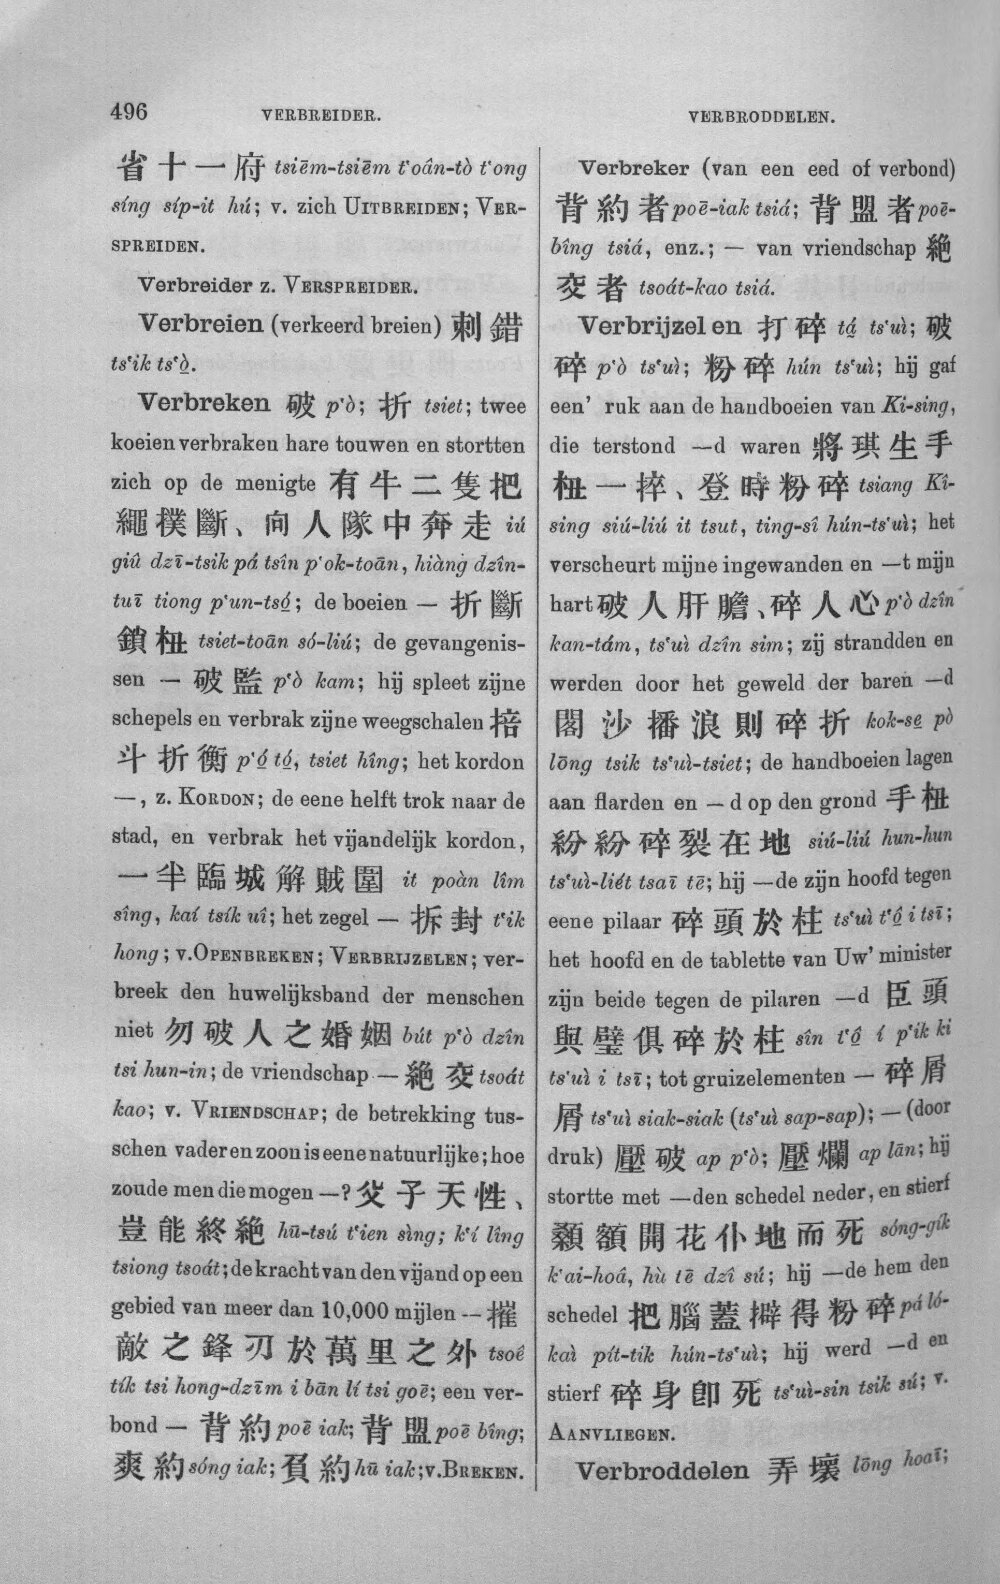 496
VERBREIDER.
VERBRODDELEN.
省十一府 tsiēm-tsiēm t'oân-tò t'ong
síng síp-it hú; v. zich UITBREIDEN; VER-
SPREIDEN.
Verbreider z. VERSPREIDER.
Verbreien (verkeerd breien) 刺錯
ts'ik ts'ò̤.
Verbreken 破 p'ò; 折 tsiet; twee
koeien verbraken hare touwen en stortten
zich op de menigte 有牛二隻把
繩撲斷、向人隊中奔走 iú
giû dzī-tsik pá tsîn p'ok-toān, hiàng dzîn-
tuī tiong p'un-tsó̤; de boeien — 折斷
鎖杻 tsiet-toān só-liú; de gevangenis-
sen — 破監 p'ò kam; hij spleet zijne
schepels en verbrak zijne weegschalen 掊
斗折衡 p'ó̤ tó̤, tsiet hîng; het kordon
—, z. KORDON; de eene helft trok naar de
stad, en verbrak het vijandelijk kordon,
一半臨城解賊圍 it poàn lîm
sîng, kaí tsík uî; het zegel — 拆封 t'ik
hong; v. OPENBREKEN; VERBRIJZELEN; ver-
breek den huwelijksband der menschen
niet 勿破人之婚姻 bút p'ò dzîn
tsi hun-in; de vriendschap — 絶交 tsoát
kao; v. VRIENDSCHAP; de betrekking tus-
schen vader en zoon is eene natuurlijke; hoe
zoude men die mogen —? 父子天性、
豈能終絶 hū-tsú t'ien sìng; k'í lîng
tsiong tsoát; de kracht van den vijand op een
gebied van meer dan 10,000 mijlen — 摧
敵之鋒刃於萬里之外 tsoê
tík tsi hong-dzīm i bān lí tsi goē; een ver-
bond — 背約 poē iak; 背盟 poē bîng;
爽約 sóng iak; 負約 hū iak; v. BREKEN.
Verbreker (van een eed of verbond)
背約者 poē-iak tsiá; 背盟者 poē-
bîng tsiá, enz.; — van vriendschap 絶
交者 tsoát-kao tsiá.
Verbrijzelen 打碎 tá̤ ts'uì; 破
碎 p'ò ts'uì; 粉碎 hún ts'uì; hij gaf
een' ruk aan de handboeien van Ki-sing,
die terstond —d waren 將琪生手
杻一捽、登時粉碎 tsiang Kî-
sing siú-liú it tsut, ting-sî hún-ts'uì; het
verscheurt mijne ingewanden en —t mijn
hart 破人肝膽、碎人心 p'ò dzîn
kan-tám, ts'uì dzîn sim; zij strandden en
werden door het geweld der baren —d
閣沙播浪則碎折 kok-se̤ pò
lōng tsik ts'uì-tsiet; de handboeien lagen
aan flarden en —d op den grond 手杻
紛紛碎裂在地 siú-liú hun-hun
ts'uì-liét tsaī tē; hij —de zijn hoofd tegen
eene pilaar 碎頭於柱 ts'uì t'ô̤ i tsī;
het hoofd en de tablette van Uw' minister
zijn beide tegen de pilaren —d 臣頭
與璧俱碎於柱 sîn t'ô̤ í p'ik ki
ts'uì i tsī; tot gruizelementen — 碎屑
屑 ts'uì siak-siak (ts'uì sap-sap); — (door
druk) 壓破 ap p'ò; 壓爛 ap lān; hij
stortte met —den schedel neder, en stierf
顙額開花仆地而死 sóng-gík
k'ai-hoâ, hù tē dzî sú; hij —de hem den
schedel 把腦蓋擗得粉碎 pá ló-
kaì pít-tik hún-ts'uì; hij werd —d en
stierf 碎身卽死 ts'uì-sin tsik sú; v.
AANVLIEGEN.
Verbroddelen 弄壞 lōng hoaī;